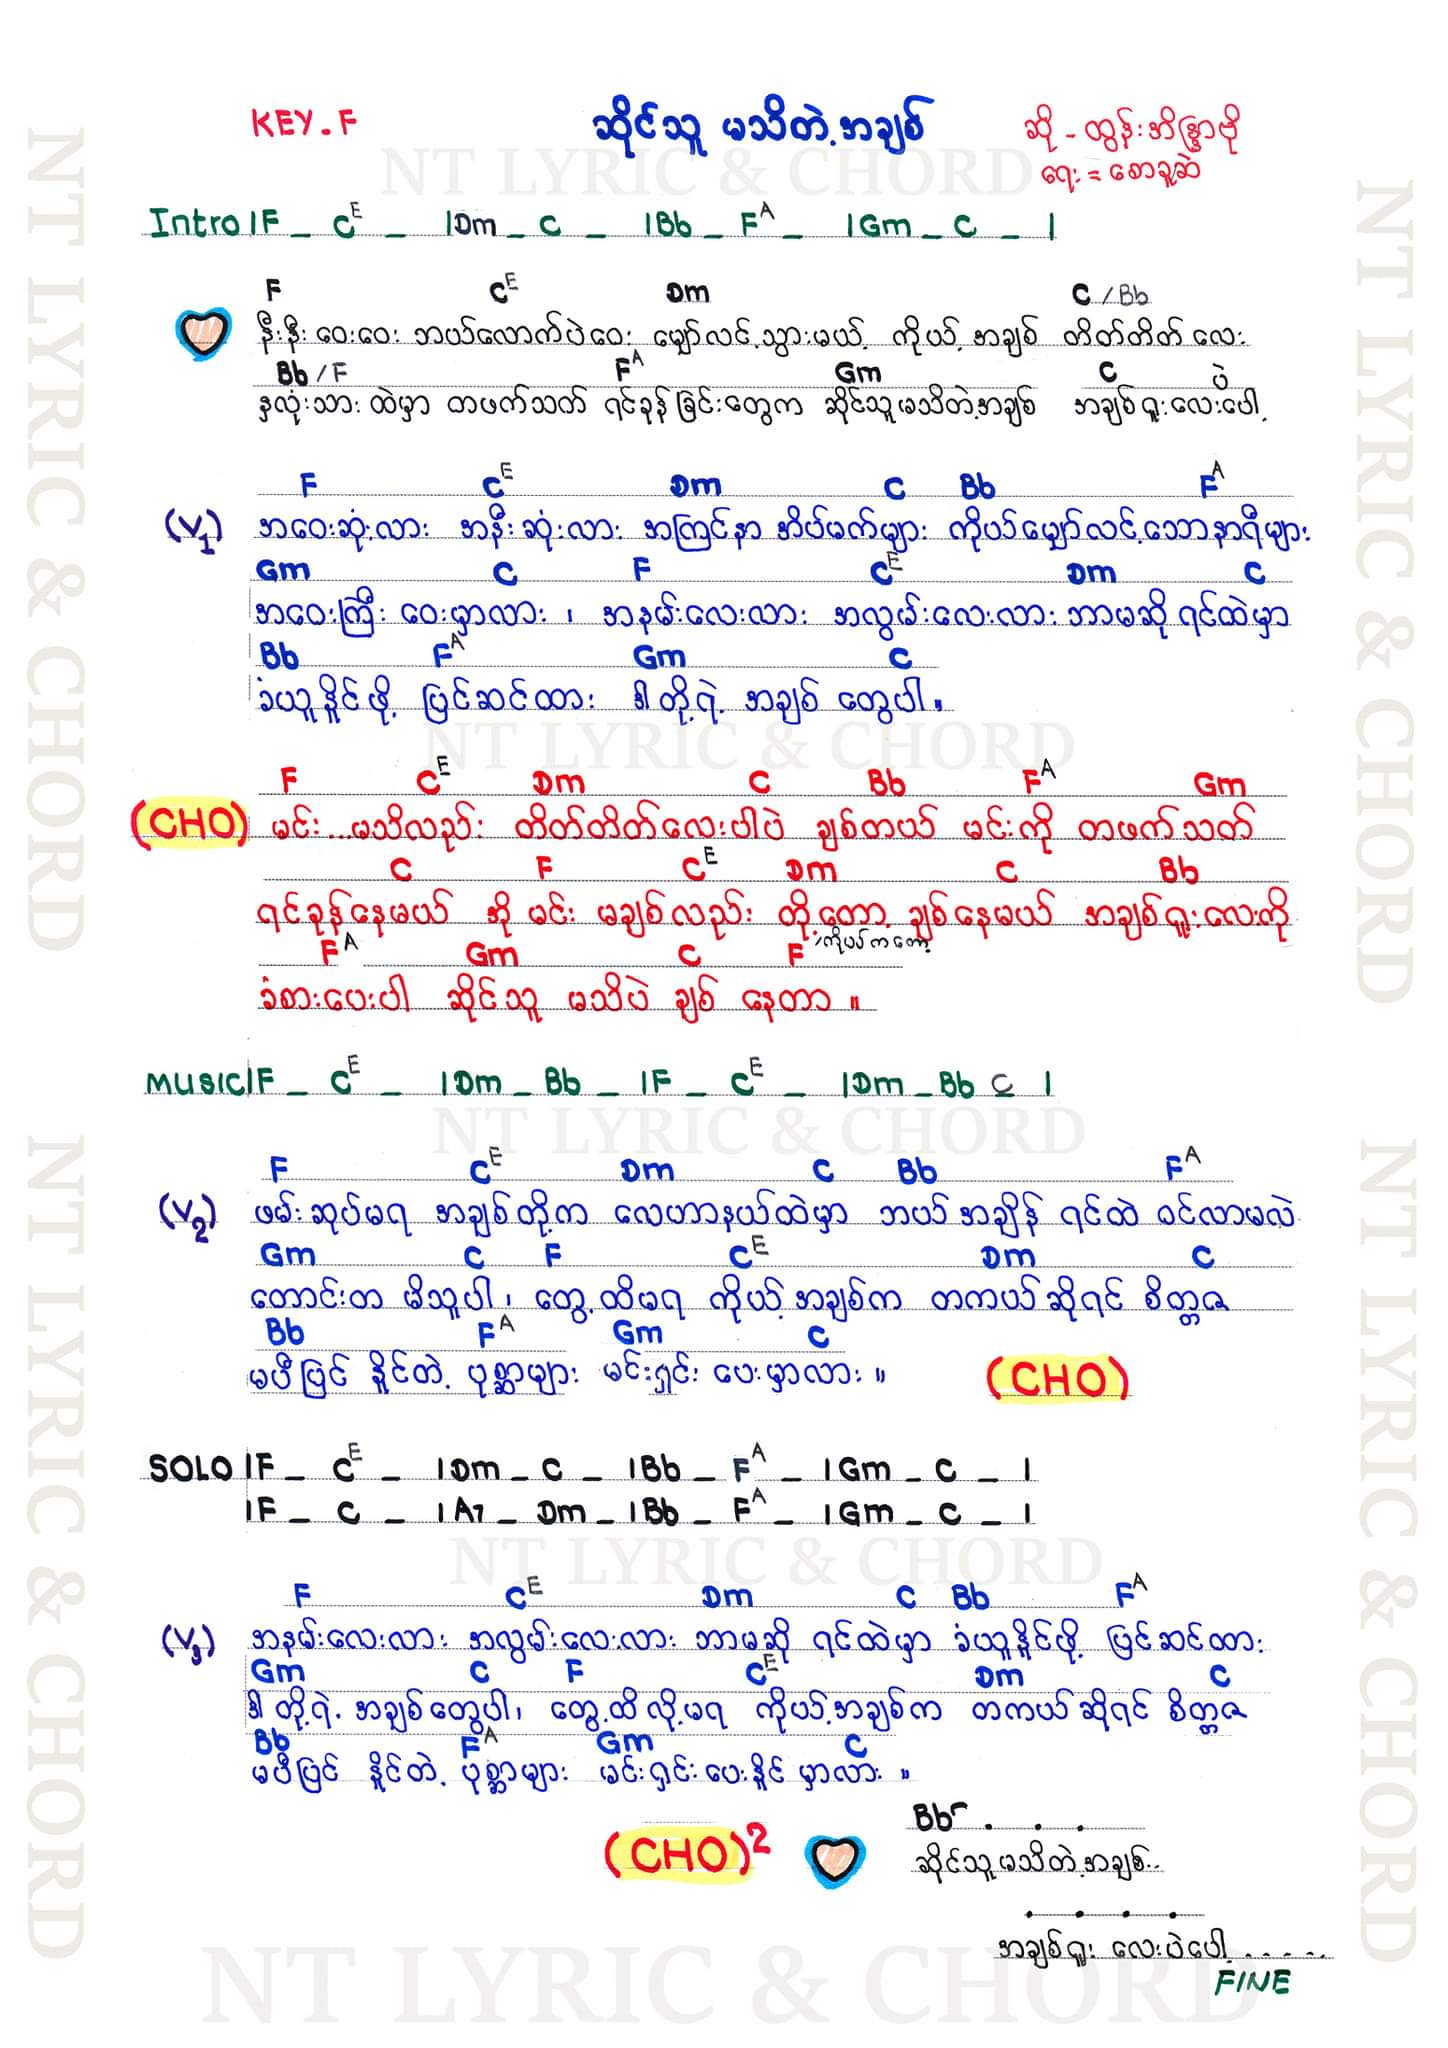 KEY-F
ဆိုင်သူ မသိတဲ့အချစ်
ဆို - ထွန်းအိန္ဒြာဗို
ရေး = စောခူဆဲ
NT LYRIC & CHORD
Intro |F _ C^E _ |Dm _ C _ |Bb _ F^A _ |Gm _ C _ |
F C^E Dm C /Bb
နီးနီး ဝေးဝေး ဘယ်လောက်ပဲဝေး မျှော်လင့်သွားမယ် ကိုယ့်အချစ် တိတ်တိတ်လေး
Bb /F F^A Gm C ပဲ
နှလုံးသားထဲမှာ တဖက်သတ် ရင်ခုန်ခြင်းတွေက ဆိုင်သူမသိတဲ့အချစ် အချစ်ရူးလေးပေါ့
(V1)
F C^E Dm C Bb F^A
အဝေးဆုံးလား အနီးဆုံးလား အကြင်နာ အိပ်မက်များ ကိုယ်မျှော်လင့်သောနာရီများ
Gm C F C^E Dm C
အဝေးကြီး ဝေးမှာလား ၊ အနမ်းလေးလား အလွမ်းလေးလား ဘာမဆို ရင်ထဲမှာ
Bb F^A Gm C
ခံယူနိူင်ဖို့ ပြင်ဆင်ထား ဒါတို့ရဲ့ အချစ်တွေပါ။
NT LYRIC & CHORD
F C^E Dm C Bb F^A Gm
(CHO) မင်း...မသိလည်း တိတ်တိတ်လေးပါပဲ ချစ်တယ် မင်းကို တဖက်သတ်
C F C^E Dm C Bb
ရင်ခုန်နေမယ် အို မင်း မချစ်လည်း တို့တော့ ချစ်နေမယ် အချစ်ရူးလေးကို
F^A Gm C F /ကိုယ်ကတော့
ခံစားပေးပါ ဆိုင်သူ မသိပဲ ချစ်နေတာ ။
MUSIC |F _ C^E _ |Dm _ Bb _ |F _ C^E _ |Dm _ Bb C |
NT LYRIC & CHORD
F C^E Dm C Bb F^A
(V2) ဖမ်းဆုပ်မရ အချစ်တို့က လေဟာနယ်ထဲမှာ ဘယ်အချိန် ရင်ထဲ ဝင်လာမလဲ
Gm C F C^E Dm C
တောင်းတ မိသူပါ၊ တွေ့ထိမရ ကိုယ့်အချစ်က တကယ်ဆိုရင် စိတ္တဇ
Bb F^A Gm C
မပီပြင် နိူင်တဲ့ ပုစ္ဆာများ မင်းရှင်းပေးမှာလား ။
(CHO)
SOLO |F _ C^E _ |Dm _ C _ |Bb _ F^A _ |Gm _ C _ |
|F _ C _ |A7 _ Dm _ |Bb _ F^A _ |Gm _ C _ |
NT LYRIC & CHORD
F C^E Dm C Bb F^A
(V3) အနမ်းလေးလား အလွမ်းလေးလား ဘာမဆို ရင်ထဲမှာ ခံယူနိူင်ဖို့ ပြင်ဆင်ထား
Gm C F C^E Dm C
ဒါတို့ရဲ့ အချစ်တွေပါ၊ တွေ့ထိလို့မရ ကိုယ့်အချစ်က တကယ်ဆိုရင် စိတ္တဇ
Bb F^A Gm C
မပီပြင် နိူင်တဲ့ ပုစ္ဆာများ မင်းရှင်းပေးနိူင်မှာလား ။
(CHO)2
Bb . . .
ဆိုင်သူမသိတဲ့အချစ်..
. . . .
အချစ်ရူး လေးပဲပေါ့.....
FINE
NT LYRIC & CHORD
NT LYRIC & CHORD
NT LYRIC & CHORD
NT LYRIC & CHORD
NT LYRIC & CHORD